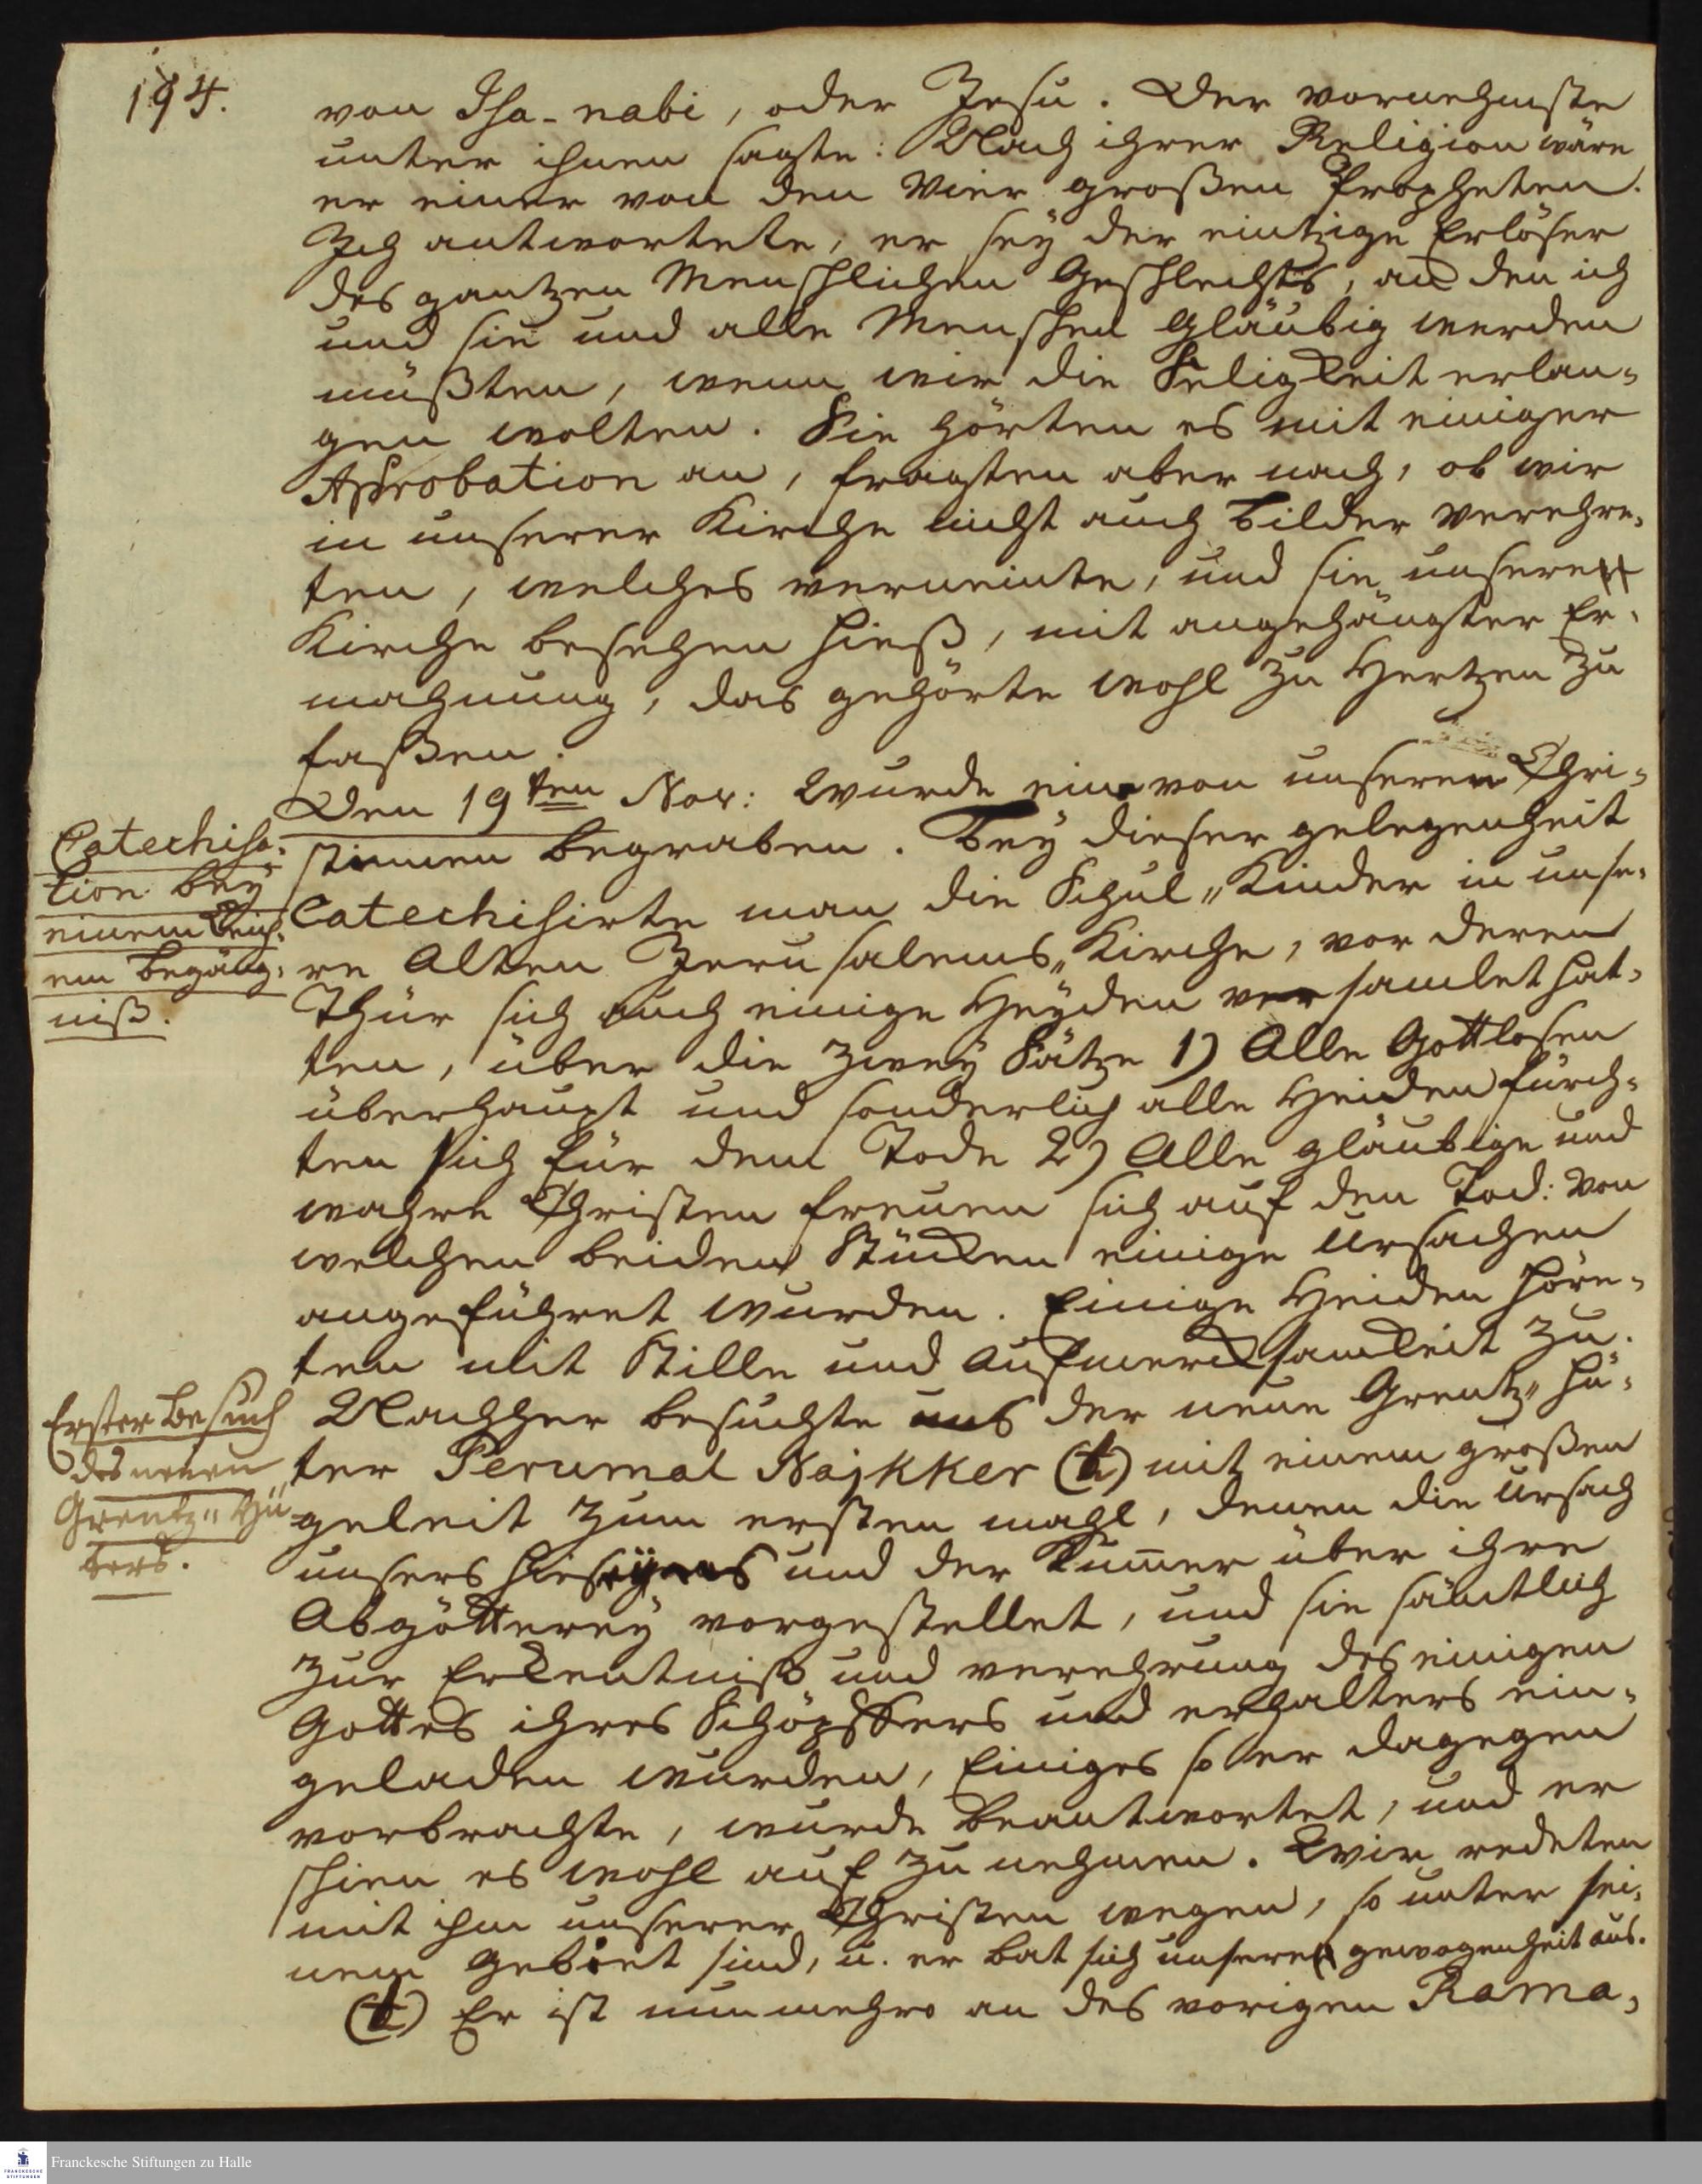 194.
von Isa-nabi, oder Jesu. Der vornehmste
unter ihnen sagte: Nach ihrer Religion wäre
er einer von den Vier großen Propheten.
Ich antwortete, er seÿ der eintzige Erlöser
des gantzen Menschlichen Geschlechts, an den ich
und sie und alle Menschen gläubig werden
müßten, wenn wir die Seligkeit erlan-
gen wolten. Sie hörten es mit einiger
Approbation an, fragten aber nach, ob wir
in unserer Kirche nicht auch Bilder verehre-
ten, welches verneinte, und sie unsere
Kirche besehen hieß, mit angehängter Er-
mahnung, das gehörte wohl zu Hertzen zu
faßen.
Den 19ten Nov: Wurde eine von unseren Chri-
stinnen begraben. Beÿ dieser gelegenheit
Catechisirte man die Schul-Kinder in unse-
re Alten Jerusalems-Kirche, vor deren
Thür sich auch einige Heÿden versamlet hat-
ten, über die zweÿ Sätze 1) Alle Gottlosen
überhaupt und sonderlich alle Heiden fürch-
ten sich für dem Tode 2) Alle gläubige und
wahre Christen freuen sich auf den Tod: Von
welchen beiden Stücken einige Ursachen
angeführet wurden. Einige Heiden höre-
ten mit Stille und Aufmercksamkeit zu.
Nachher besuchte uns der neue Grentz-Hü-
ter Perumal Najkker (a) mit einem großen
geleit zum ersten mahl, denen die Ursach
unsers hierseÿns und der Kummer über ihre
Abgötterey vorgestellet, und sie sämtlich
zur Erkentniß und verehrung des einigen
Gottes ihres Schöpffers und erhalters ein-
geladen wurden, Einiges so er dagegen
vorbrachte, wurde beantwortet, und er
schien es wohl auf zu nehmen. Wir redeten
mit ihm unserer Christen wegen, so unter sei-
nem Gebiet sind, u. er bat sich unsere gewogenheit aus.
(a) Er ist nunmehro an des vorigen Rama-
Catechisa-
tion beÿ
einem Leich-
en begäng-
niß.
Erster Besuch
des neuen
Grentz-Hü
ters.
Franckesche Stiftungen zu Halle